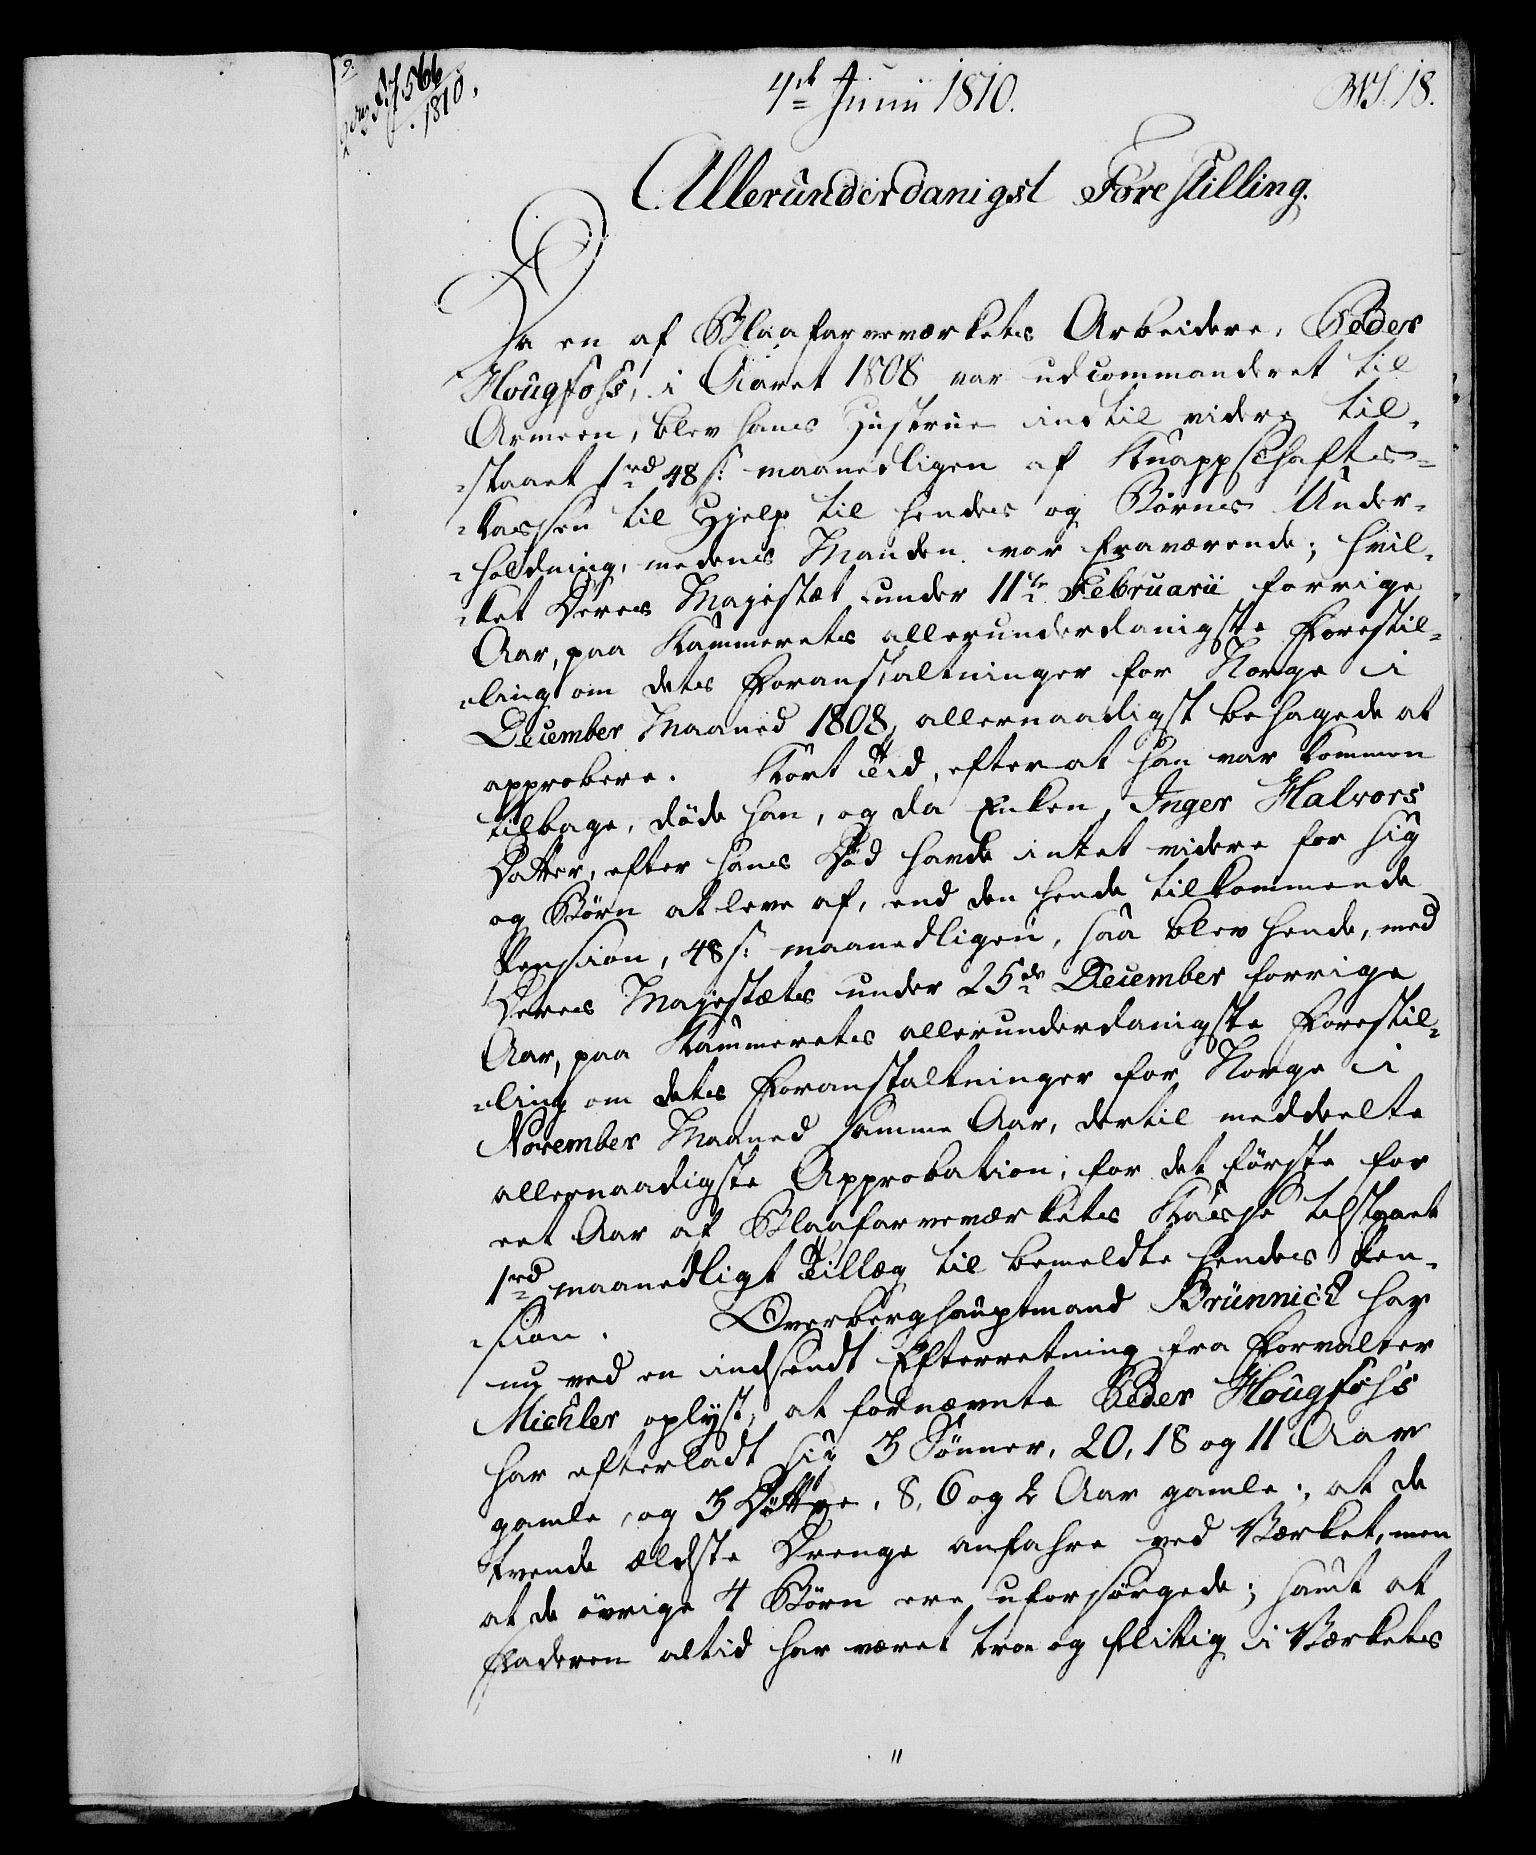 566
1810.
4de Junii 1810.
18.
Allerunderdanigst Forestilling.
Da en af Blaafarveværkets Arbeidere, Peder
Hougfoss, i Aaret 1808 var udcommanderet til
Armeen, blev hans Hustrue indtil videre til-
-staaet 1 rd 48 s: maanedligen af Knappschafts-
-kassen til Hjelp til hendes og Børnes Under-
-holdning, medens Manden var fraværende; hvil-
-ket Deres Majestæt under 11te Februarii forrige
Aar, paa Kammerets allerunderdanigste Forestil-
-ling om dets Foranstaltninger for Norge i
December Maaned 1808, allernaadigst behagede at
approbere. Kort Tid, efterat han var kommen
tilbage, døde han, og da Enken, Inger Halvors
Datter, efter hans Død havde intet videre for sig
og Børn at leve af, end den hende tilkommende
Pension, 48 s: maanedligen, saa blev hende, med
Deres Majestæts under 25de December forrige
Aar, paa Kammerets allerunderdanigste Forestil-
-ling om dets Foranstaltninger for Norge i
November Maaned samme Aar, dertil meddeelte
allernaadigste Approbation, for det første for
eet Aar af Blaafarveværkets Kasse tilstaaet
1 rd maanedligt Tillæg til bemeldte hendes Pen-
-sion. Overberghauptmand Brünnich har
nu ved en indsendt Efterretning fra Forvalter
Michler oplyst, at fornævnte Peder Hougfoss
har efterladt sig 3 Sønner, 20, 18 og 11 Aar
gamle, og 3 Døttre, 8, 6 og 2 Aar gamle; at de
tvende ældste Drenge anfahre ved Værket, men
at de øvrige 4 Børn ere uforsørgede; samt at
Faderen altid har været troe og flittig i Værkets
"